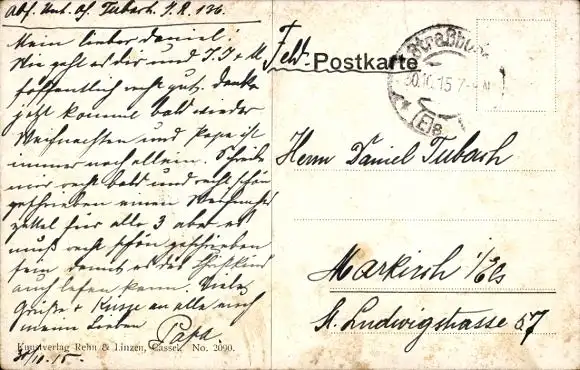 Abs. Unt. Of. Tubach I. R. 136.
Mein lieber Daniel!
Wie geht es dir und J. J + M
hoffentlich recht gut. Denke
jetzt kommt bald wieder
Weihnachten und Papa ist
immer noch allein. Schreibe
mir recht bald und recht schön
geschrieben einen Weihnachts
zettel für alle 3 aber es
muß recht schön geschrieben
sein damit es das Christkind
auch lesen kann. Viele
Grüße + Küsse an alle auch
meine Lieben
Papa.
Kunstverlag Rehn & Linzen, Cassel. No. 2090.
30/10.15.
Feld-Postkarte
Straßburg
30.10.15 7-8
(Els
Herrn Daniel Tubach
Markirch i/Els
St. Ludwigstrasse 57